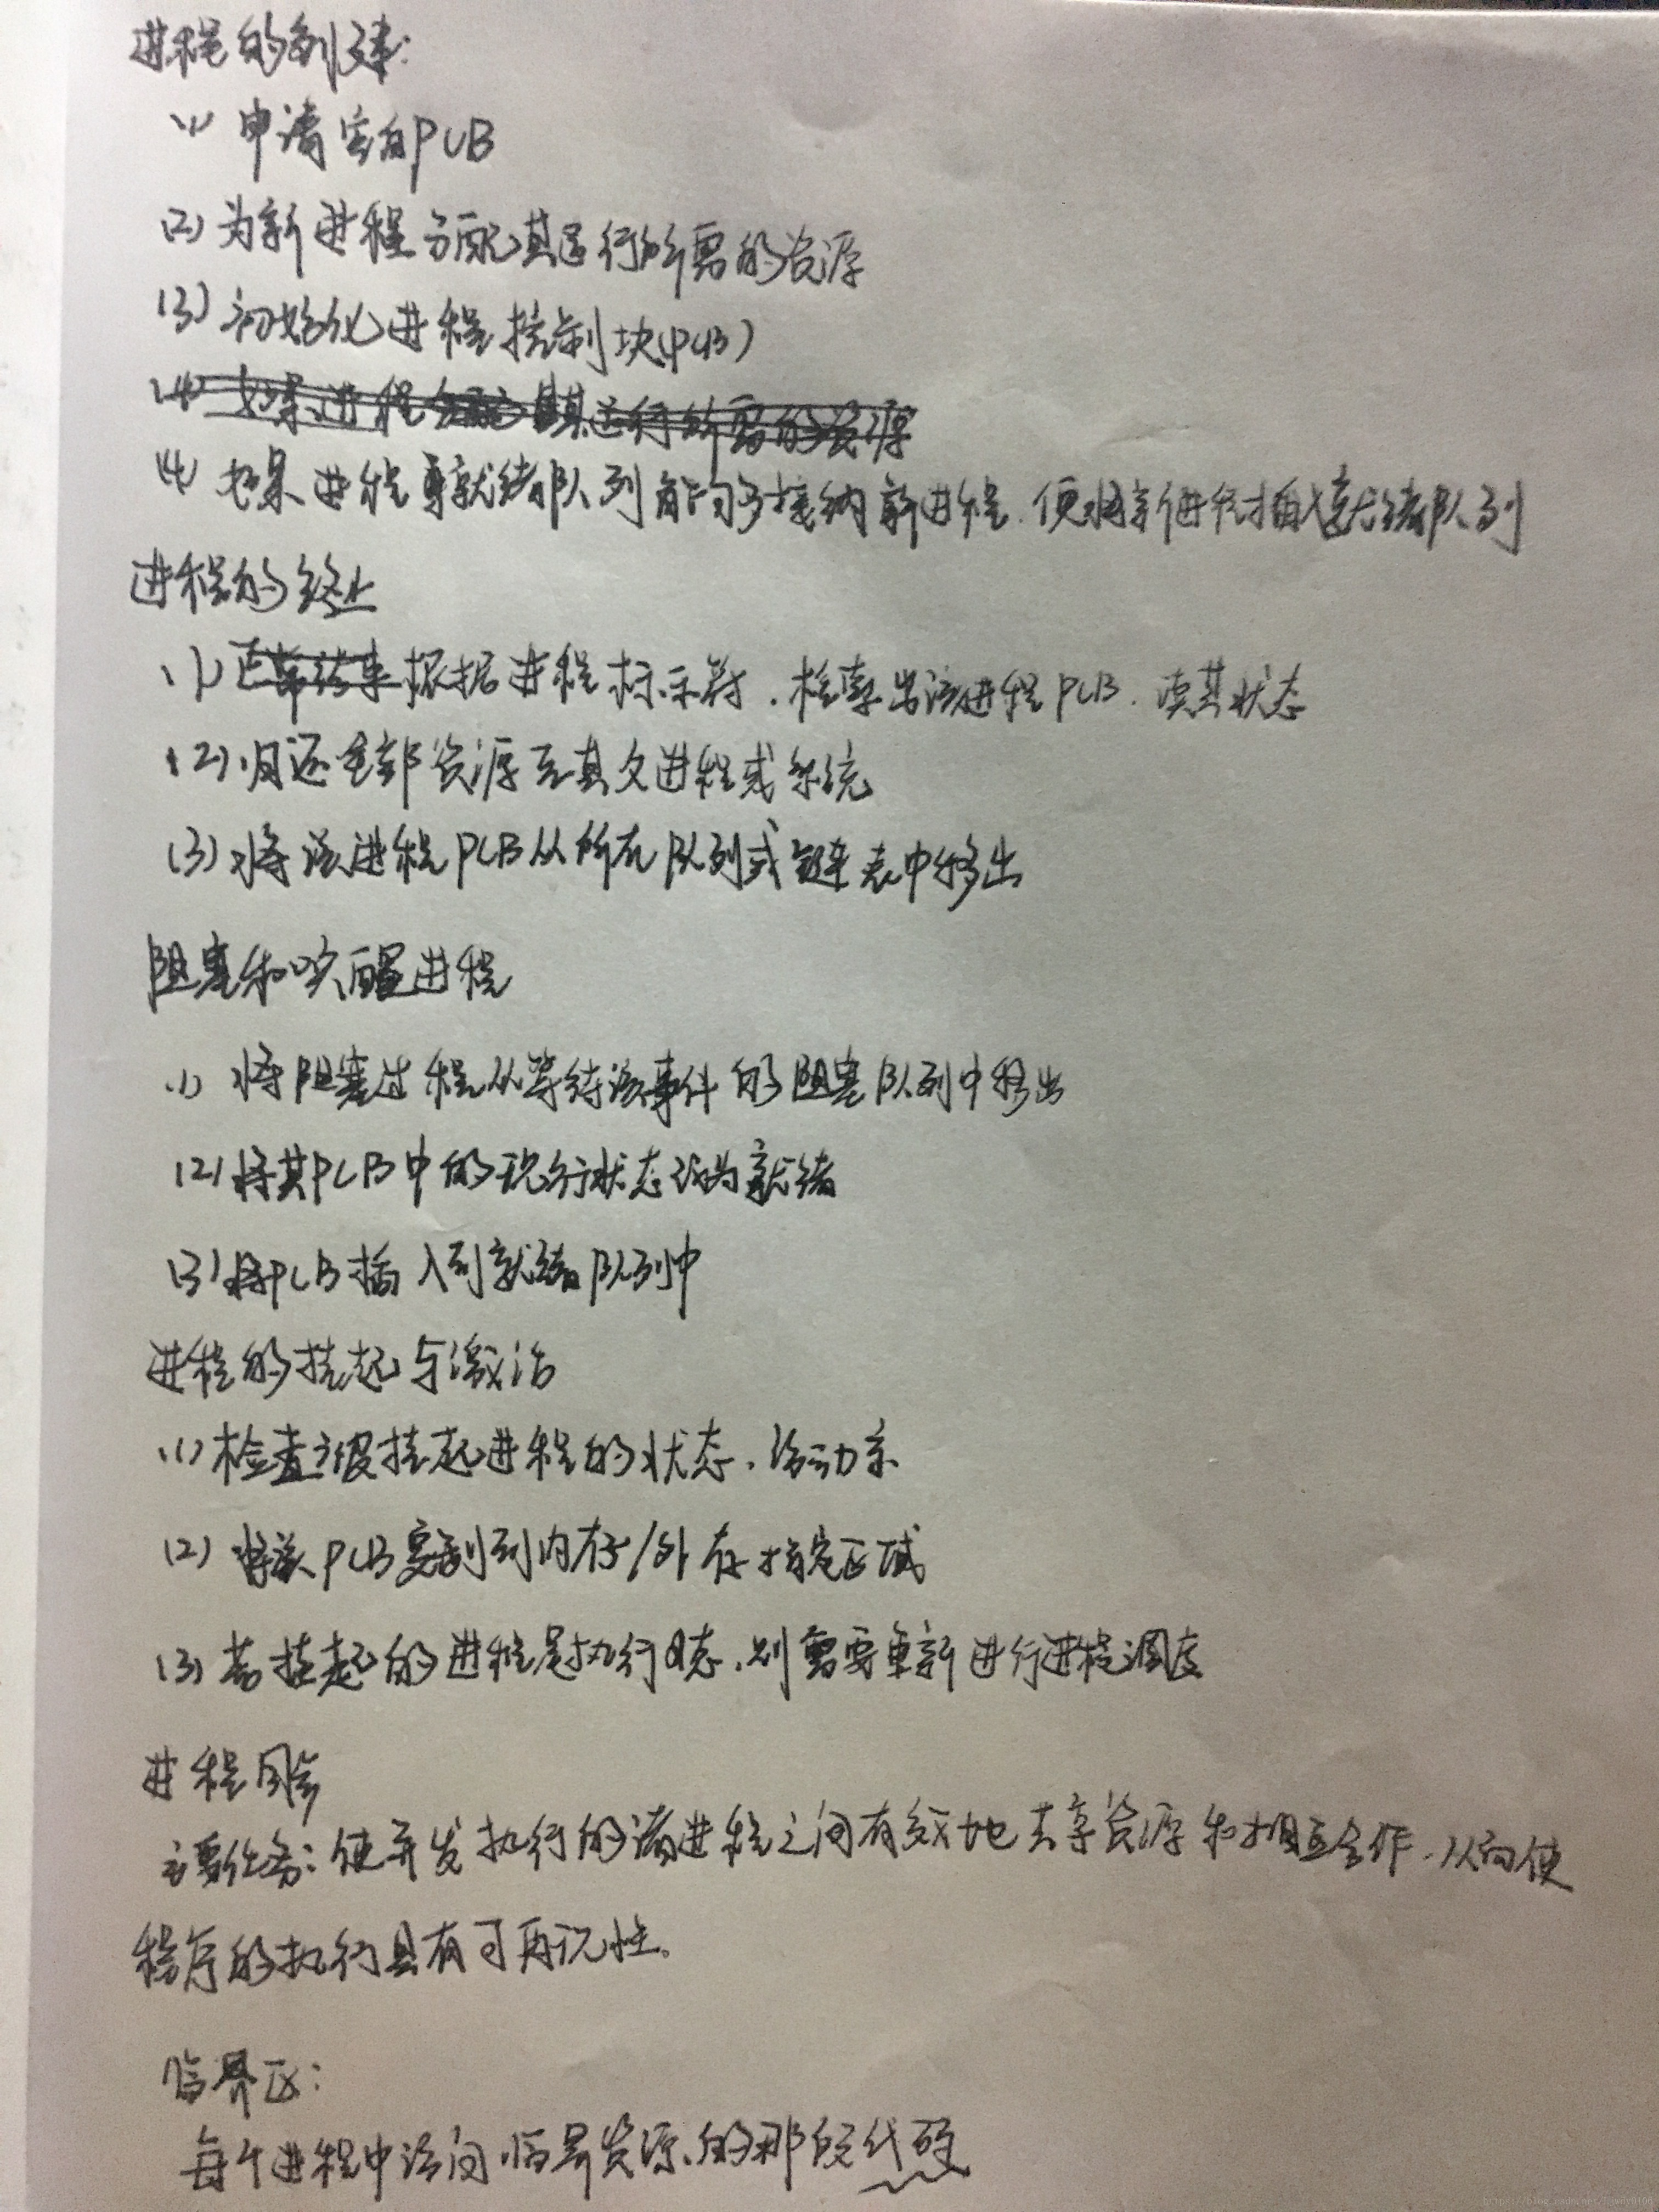 进程的创建:
(1) 申请空白PCB
(2) 为新进程分配其运行所需的资源
(3) 初始化进程控制块(PCB)
(4) 如果进程分配其运行所需的资源
(4) 如果进程就绪队列能够接纳新进程,便将新进程插入就绪队列
进程的终止
(1) 正常结束根据进程标示符,检索出该进程PCB,读其状态
(2) 归还全部资源至其父进程或系统
(3) 将该进程PCB从所在队列或链表中移出
阻塞和唤醒进程
(1) 将阻塞过程从等待该事件的阻塞队列中移出
(2) 将其PCB中的现行状态改为就绪
(3) 将PCB插入到就绪队列中
进程的挂起与激活
(1) 检查被挂起进程的状态,活动
(2) 将该PCB复制到内存/外存指定区域
(3) 若挂起的进程是执行态,则需要重新进行进程调度
进程同步
主要任务:使并发执行的诸进程之间有效地共享资源和相互合作,从而使
程序的执行具有可再现性。
临界区:
每个进程中访问临界资源的那段代码